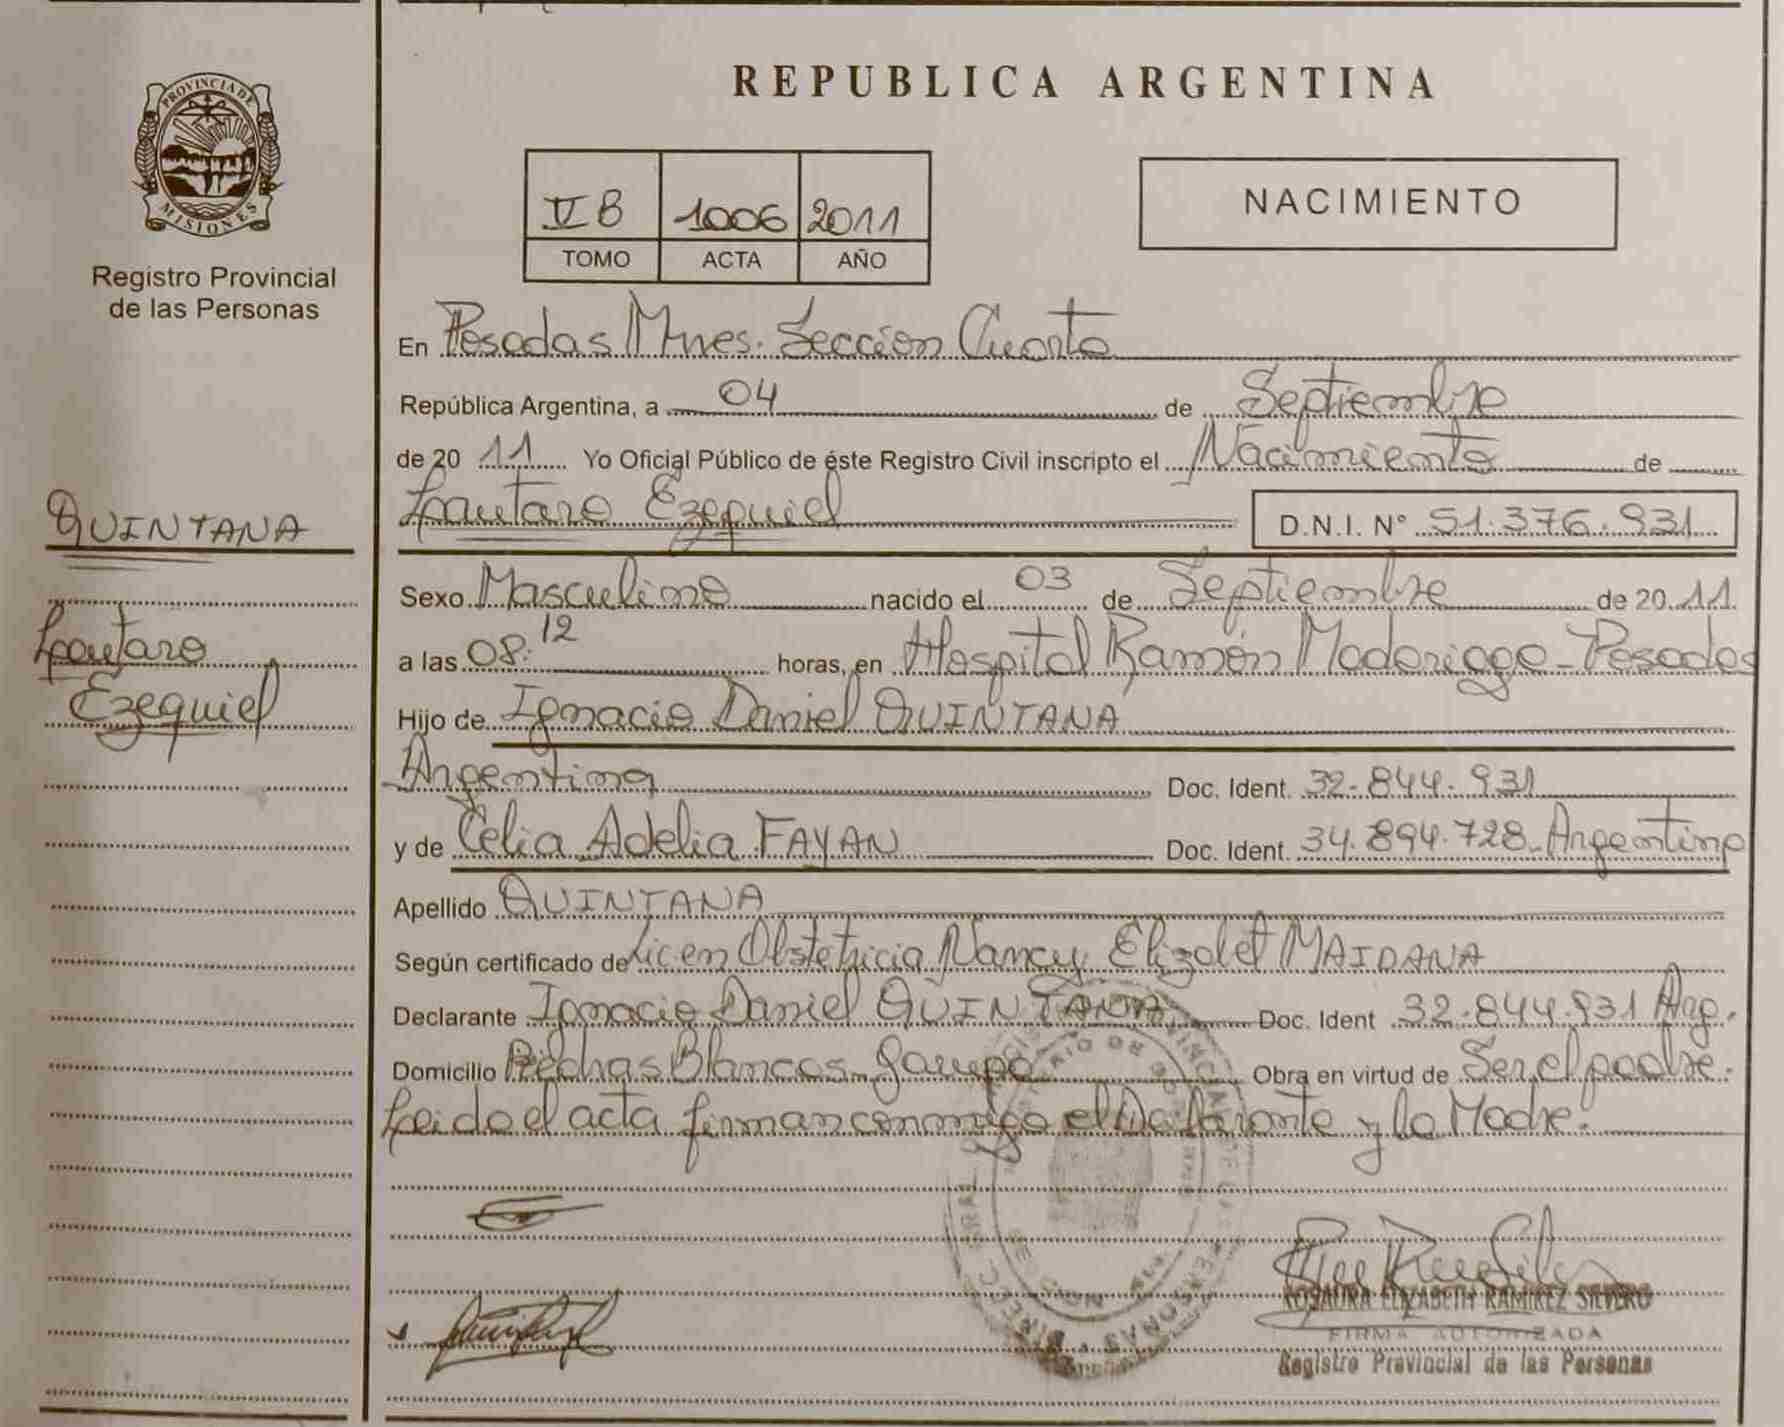 PROVINCIA DE
MISIONES
Registro Provincial
de las Personas
QUINTANA
Lautaro
Ezequiel
REPUBLICA ARGENTINA
IV B 1006 2011
TOMO ACTA AÑO
NACIMIENTO
En Posadas Mnes. Sección Cuarta
República Argentina, a 04 de Septiembre
de 20 11 Yo Oficial Público de éste Registro Civil inscripto el Nacimiento de
Lautaro Ezequiel D.N.I. N° 51.376.931
Sexo Masculino nacido el 03 de Septiembre de 20 11
a las 08:12 horas, en Hospital Ramón Madariaga - Posadas
Hijo de Ignacio Daniel QUINTANA
Argentina Doc. Ident. 32.844.931
y de Celia Adelia FAYAN Doc. Ident. 34.894.728 Argentina
Apellido QUINTANA
Según certificado de Licen Obstetricia Nancy Elizabet MAIDANA
Declarante Ignacio Daniel QUINTANA Doc. Ident 32.844.931 Arg.
Domicilio Blancas Garupa Obra en virtud de Ser el padre.
Leido el acta firman conmigo el Declarante y la Madre.
ROSAURA ELIZABETH RAMIREZ SILVERO
FIRMA AUTORIZADA
Registro Provincial de las Personas